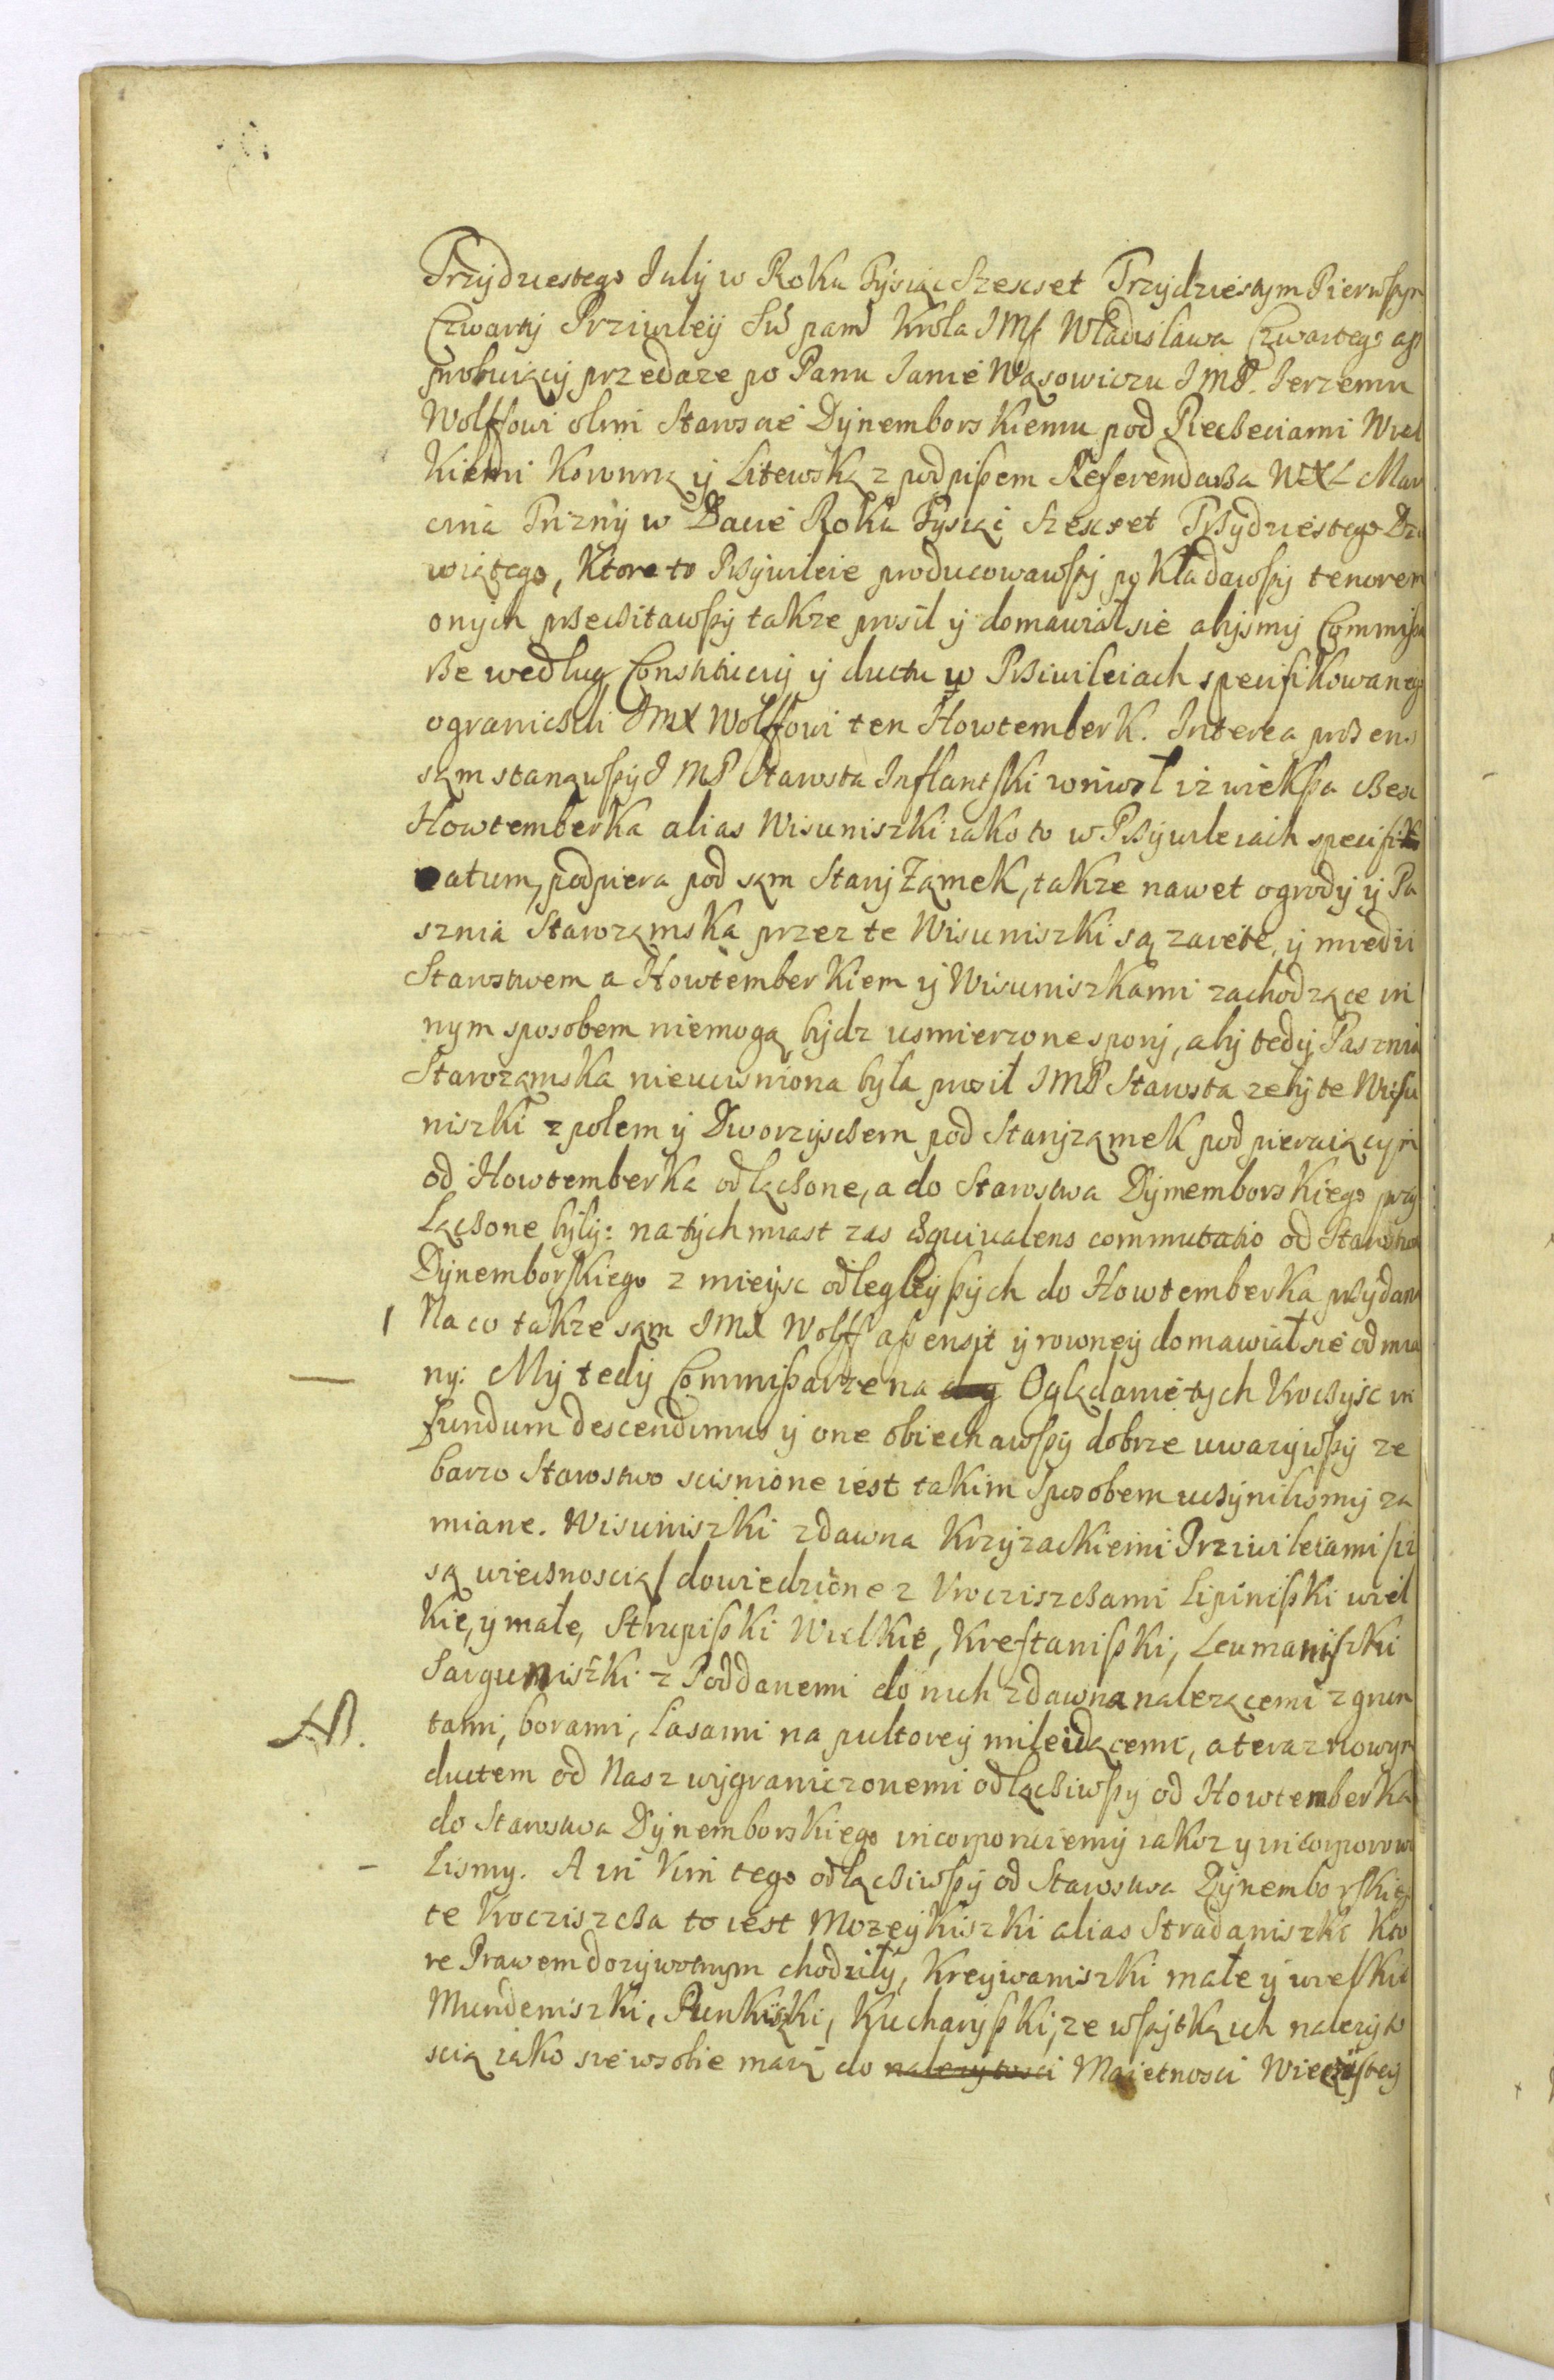 Trzydziestego July w Roku Tysiąc Szescset Trzydziestym Pierwszym
Czwarty Prziviley Sw pam Krola JMsc Władisława Czwartego ap
probuiący przedaze po Panu Janie Wąsowiczu JMP. Jerzemu
Wolffowi olim Staroscie Dynemborskiemu pod Pieczeciami Wiel
kiemi Koronną y Litewską z podpisem Referendarza WXL Mar
cina Trizny w Dacie Roku Tysiąc Szescset Trzydziestego Dzie
wiątego, Ktore to Przywileie producowawszy pokładawszy tenorem
onych przeczitawszy takze prosił y domawiał sie abysmy Commissa
rze według Constituciy y ductu w Prziwileiach specifikowanego
ograniczili JMX Wolffowi ten Howtemberk. Interea przen.
sam stanąwszy JMP Starosta Inflantski wniosł iz wieksza czesc
Howtemberka alias Wisuniszki iako to w Przywileiach specifi
catum, podpiera pod sąm Stary Zamek, takze nawet ogrody y Pa
sznia Starozamska przez te Wisuniszki są zaiete, y miedzi
Starostwem a Howtemberkiem y Wisuniszkami zachodzące in
nym sposobem niemogą bydz usmierzone spory, aby tedy Pasznia
Starozamska nieucisniona była prosił JMP Starosta zeby te Wisu
niszki z polem y Dworzysczem pod Staryzamek podpieraiącym
od Howtemberka odłączone, a do Starostwa Dynemborskiego przy
Łączone były: natychmiast zas æquivalens commutatio od Starostwa
Dynemborskiego z mieysc odlegleyszych do Howtemberka przydana
Na co takze sąm JMX Wolff assensit y rowney domawiał sie odmia
ny: My tedy Commissarze na Oglądanie tych Uroczysc in
fundum descendimus y one obiechawszy dobrze uwazywszy ze
barzo Starostwo scisnione iest takim Sposobem uczynilismy za
miane. Wisuniszki zdawna Krzyzackiemi Prziwileiami
są wiecznoscią dowiedzione z Urocziszczami Lipiniszki wiel
kie, y małe, Strupiszki Wielkie, Kreftaniszki, Leumaniszki
Sarguniszki z Poddanemi do nich zdawna nalezącemi z grun
tami, borami, Lasami na pultorey mile idącemi, a teraz nowym
ductem od Nas z wygraniczonemi odłączywszy od Howtemberka
do Starostwa Dynemborskiego incorporuiemy iakoz y incorporowa
Lismy. A in Vim tego odłącziwszy od Starostwa Dynemborskiego
te Urocziszcza to iest Mozeykiszki alias Stradaniszki Kto
re Prawem dozywotnym chodziły, Kreywaniszki małe y wielkie
Mundeniszki, Runkiszki, Kucharyszki, ze wszytką ich nalezyto
scią iako sie w sobie maią do nalezytosci Maietnosci Wieczystey
NB.